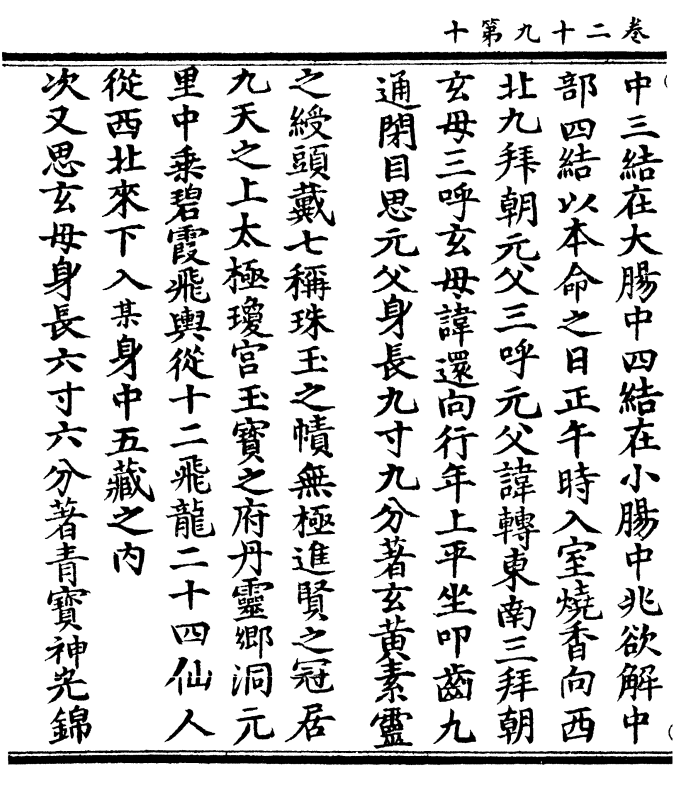 卷二十九第十
中三結在大腸中四結在小腸中兆欲解中
部四結以本命之日正午時入室燒香向西
北九拜朝元父三呼元父諱轉東南三拜朝
玄母三呼玄母諱還向行年上平坐叩齒九
通閉目思元父身長九寸九分著玄黃素靈
之綬頭戴七稱珠玉之幘無極進賢之冠居
九天之上太極瓊宮玉寶之府丹靈鄉洞元
里中乘碧霞飛輿從十二飛龍二十四仙人
從西北來下入某身中五藏之內
次又思玄母身長六寸六分著青寶神光錦